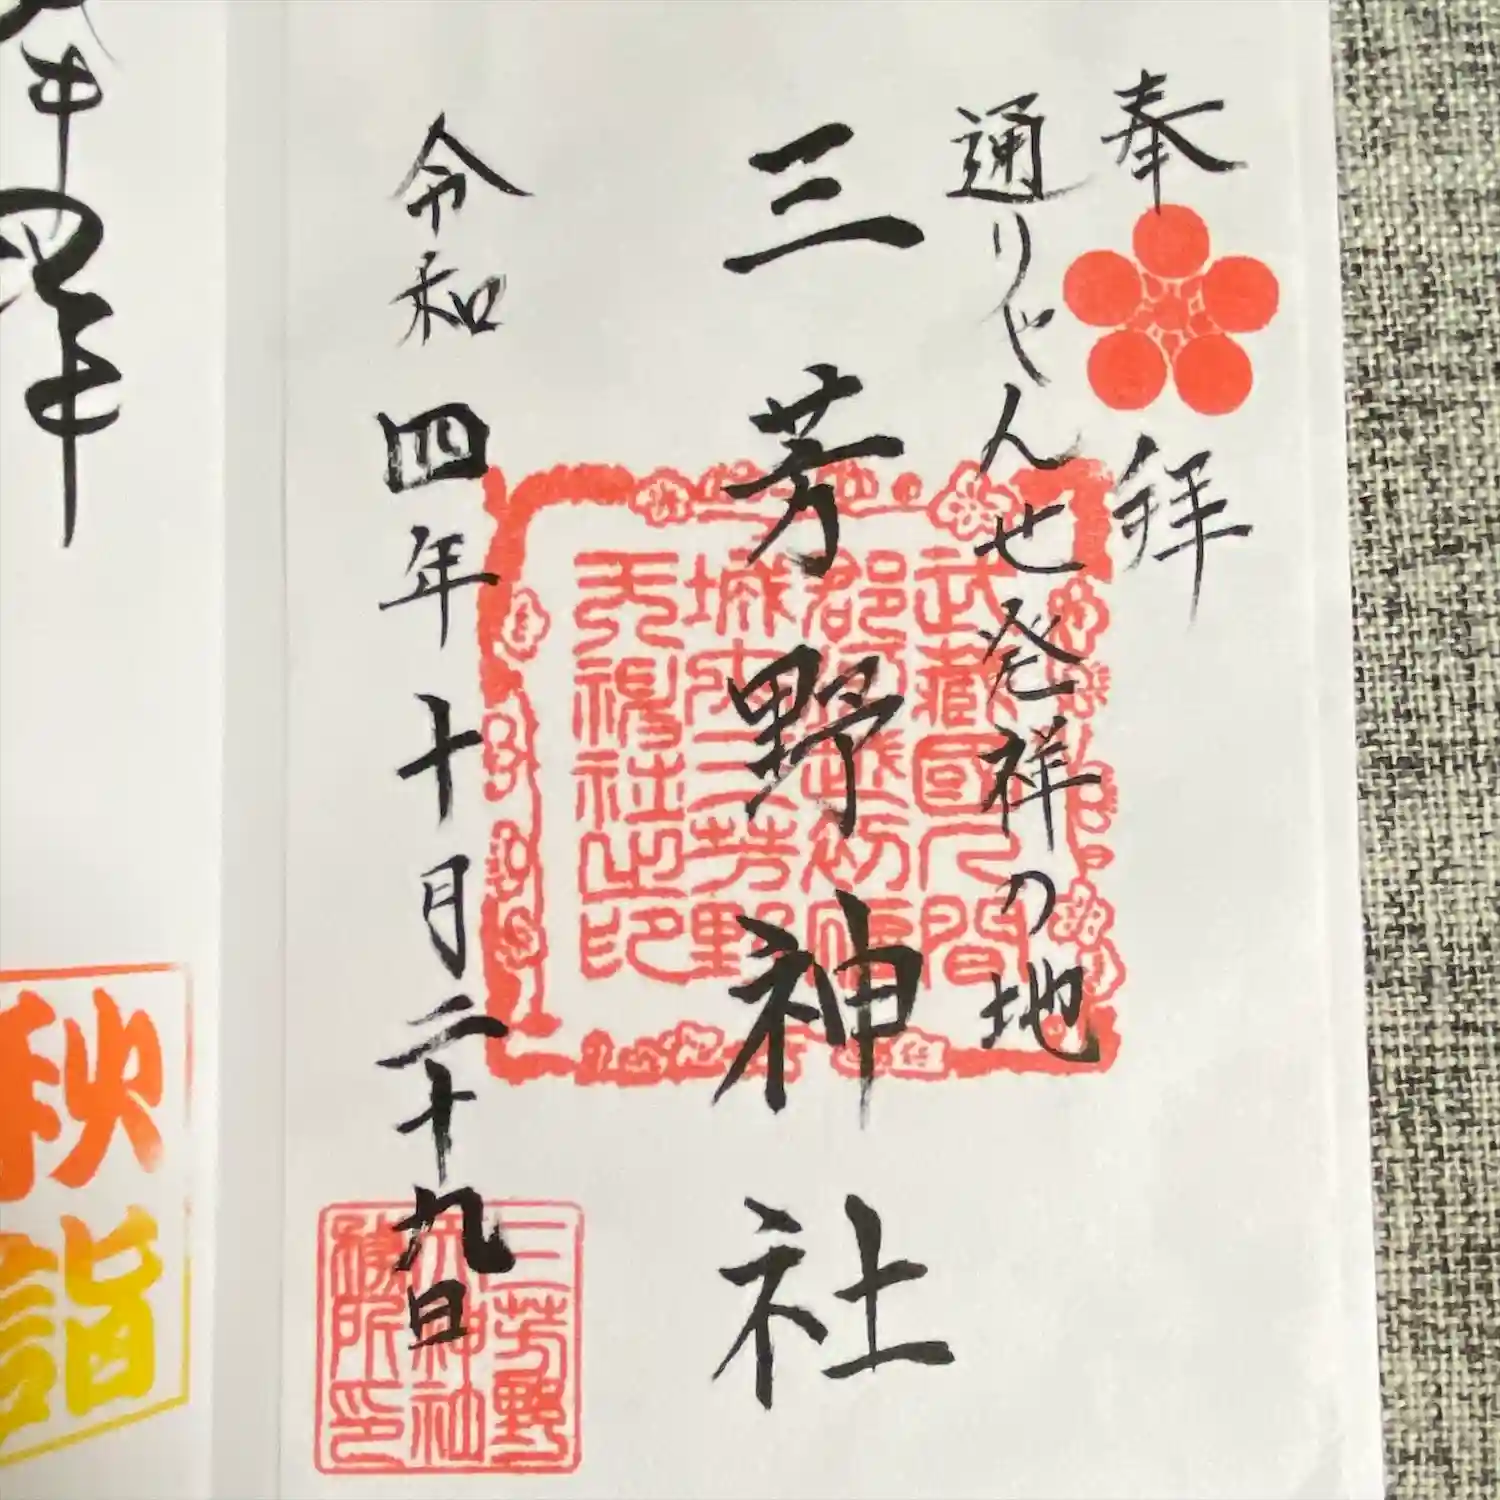 奉拝
通りゃんせ発祥の地
三芳野神社
令和四年十月二十九日
武藏國入間
郡河越初雁
城内三芳野
天神社之印
三芳野
秋詣